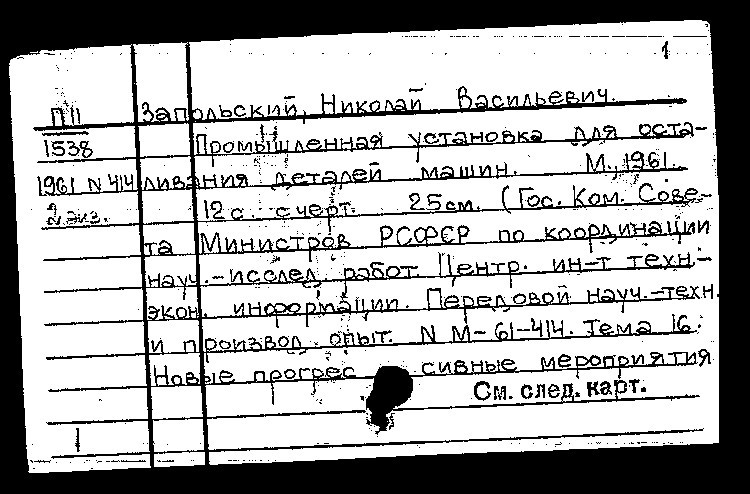 1
П11 Запольский, Николай Васильевич.
1538 Промышленная установка для оста-
1961 N 414 ливания деталей машин. М., 1961.
2 экз. 12 с. с черт. 25 см. (Гос. Ком. Сове-
та Министров РСФСР по координации
науч.-исслед. работ. Центр. ин-т техн.-
экон. информации. Передовой науч.-техн.
и производ. опыт. N М-61-414. Тема 16.
Новые прогрес сивные мероприятия
См. след. карт.
1